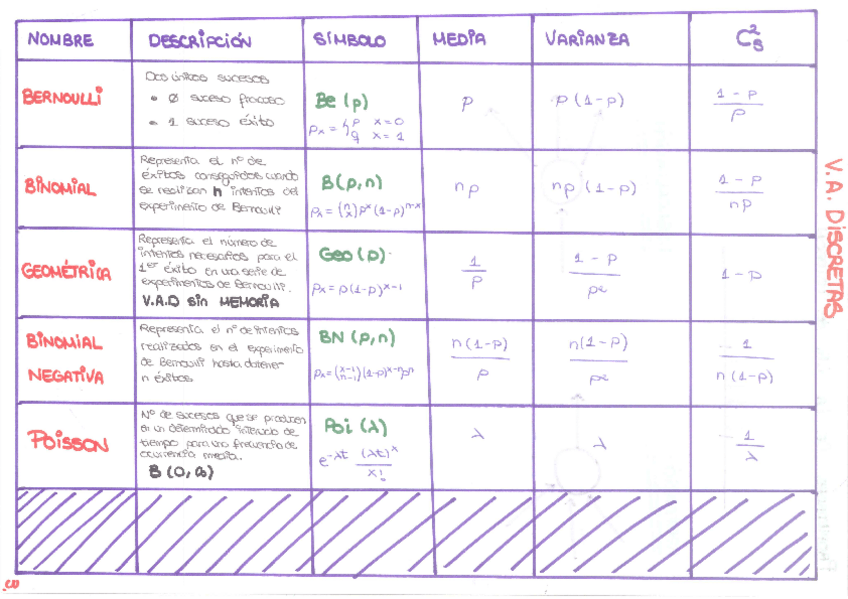 NOMBRE DESCRIPCIÓN SÍMBOLO MEDIA VARIANZA C²s
BERNOULLI
Dos únicos sucesos
• 0 suceso fracaso
• 1 suceso éxito
Be (p)
Px = { p x=0
q x=1
p
p (1-p)
1-p / p
BINOMIAL
Representa el nº de
éxitos conseguidos cuando
se realizan n intentos del
experimento de Bernoulli
B(p,n)
Px = (n x) p^x (1-p)^n-x
np
np (1-p)
1-p / np
GEOMÉTRICA
Representa el número de
intentos necesarios para el
1er éxito en una serie de
experimentos de Bernoulli.
V.A.D sin MEMORIA
Geo (p)
Px = p(1-p)^x-1
1 / p
1-p / p²
1-p
BINOMIAL
NEGATIVA
Representa el nº de intentos
realizados en el experimento
de Bernoulli hasta obtener
n éxitos
BN (p,n)
Px = (x-1 n-1) (1-p)^x-n p^n
n(1-p) / p
n(1-p) / p²
1 / n(1-p)
POISSON
Nº de sucesos que se producen
en un determinado intervalo de
tiempo para una frecuencia de
ocurrencia media.
B (0, ∞)
Poi (λ)
e^-λt (λt)^x / x!
λ
λ
1 / λ
V.A. DISCRETAS